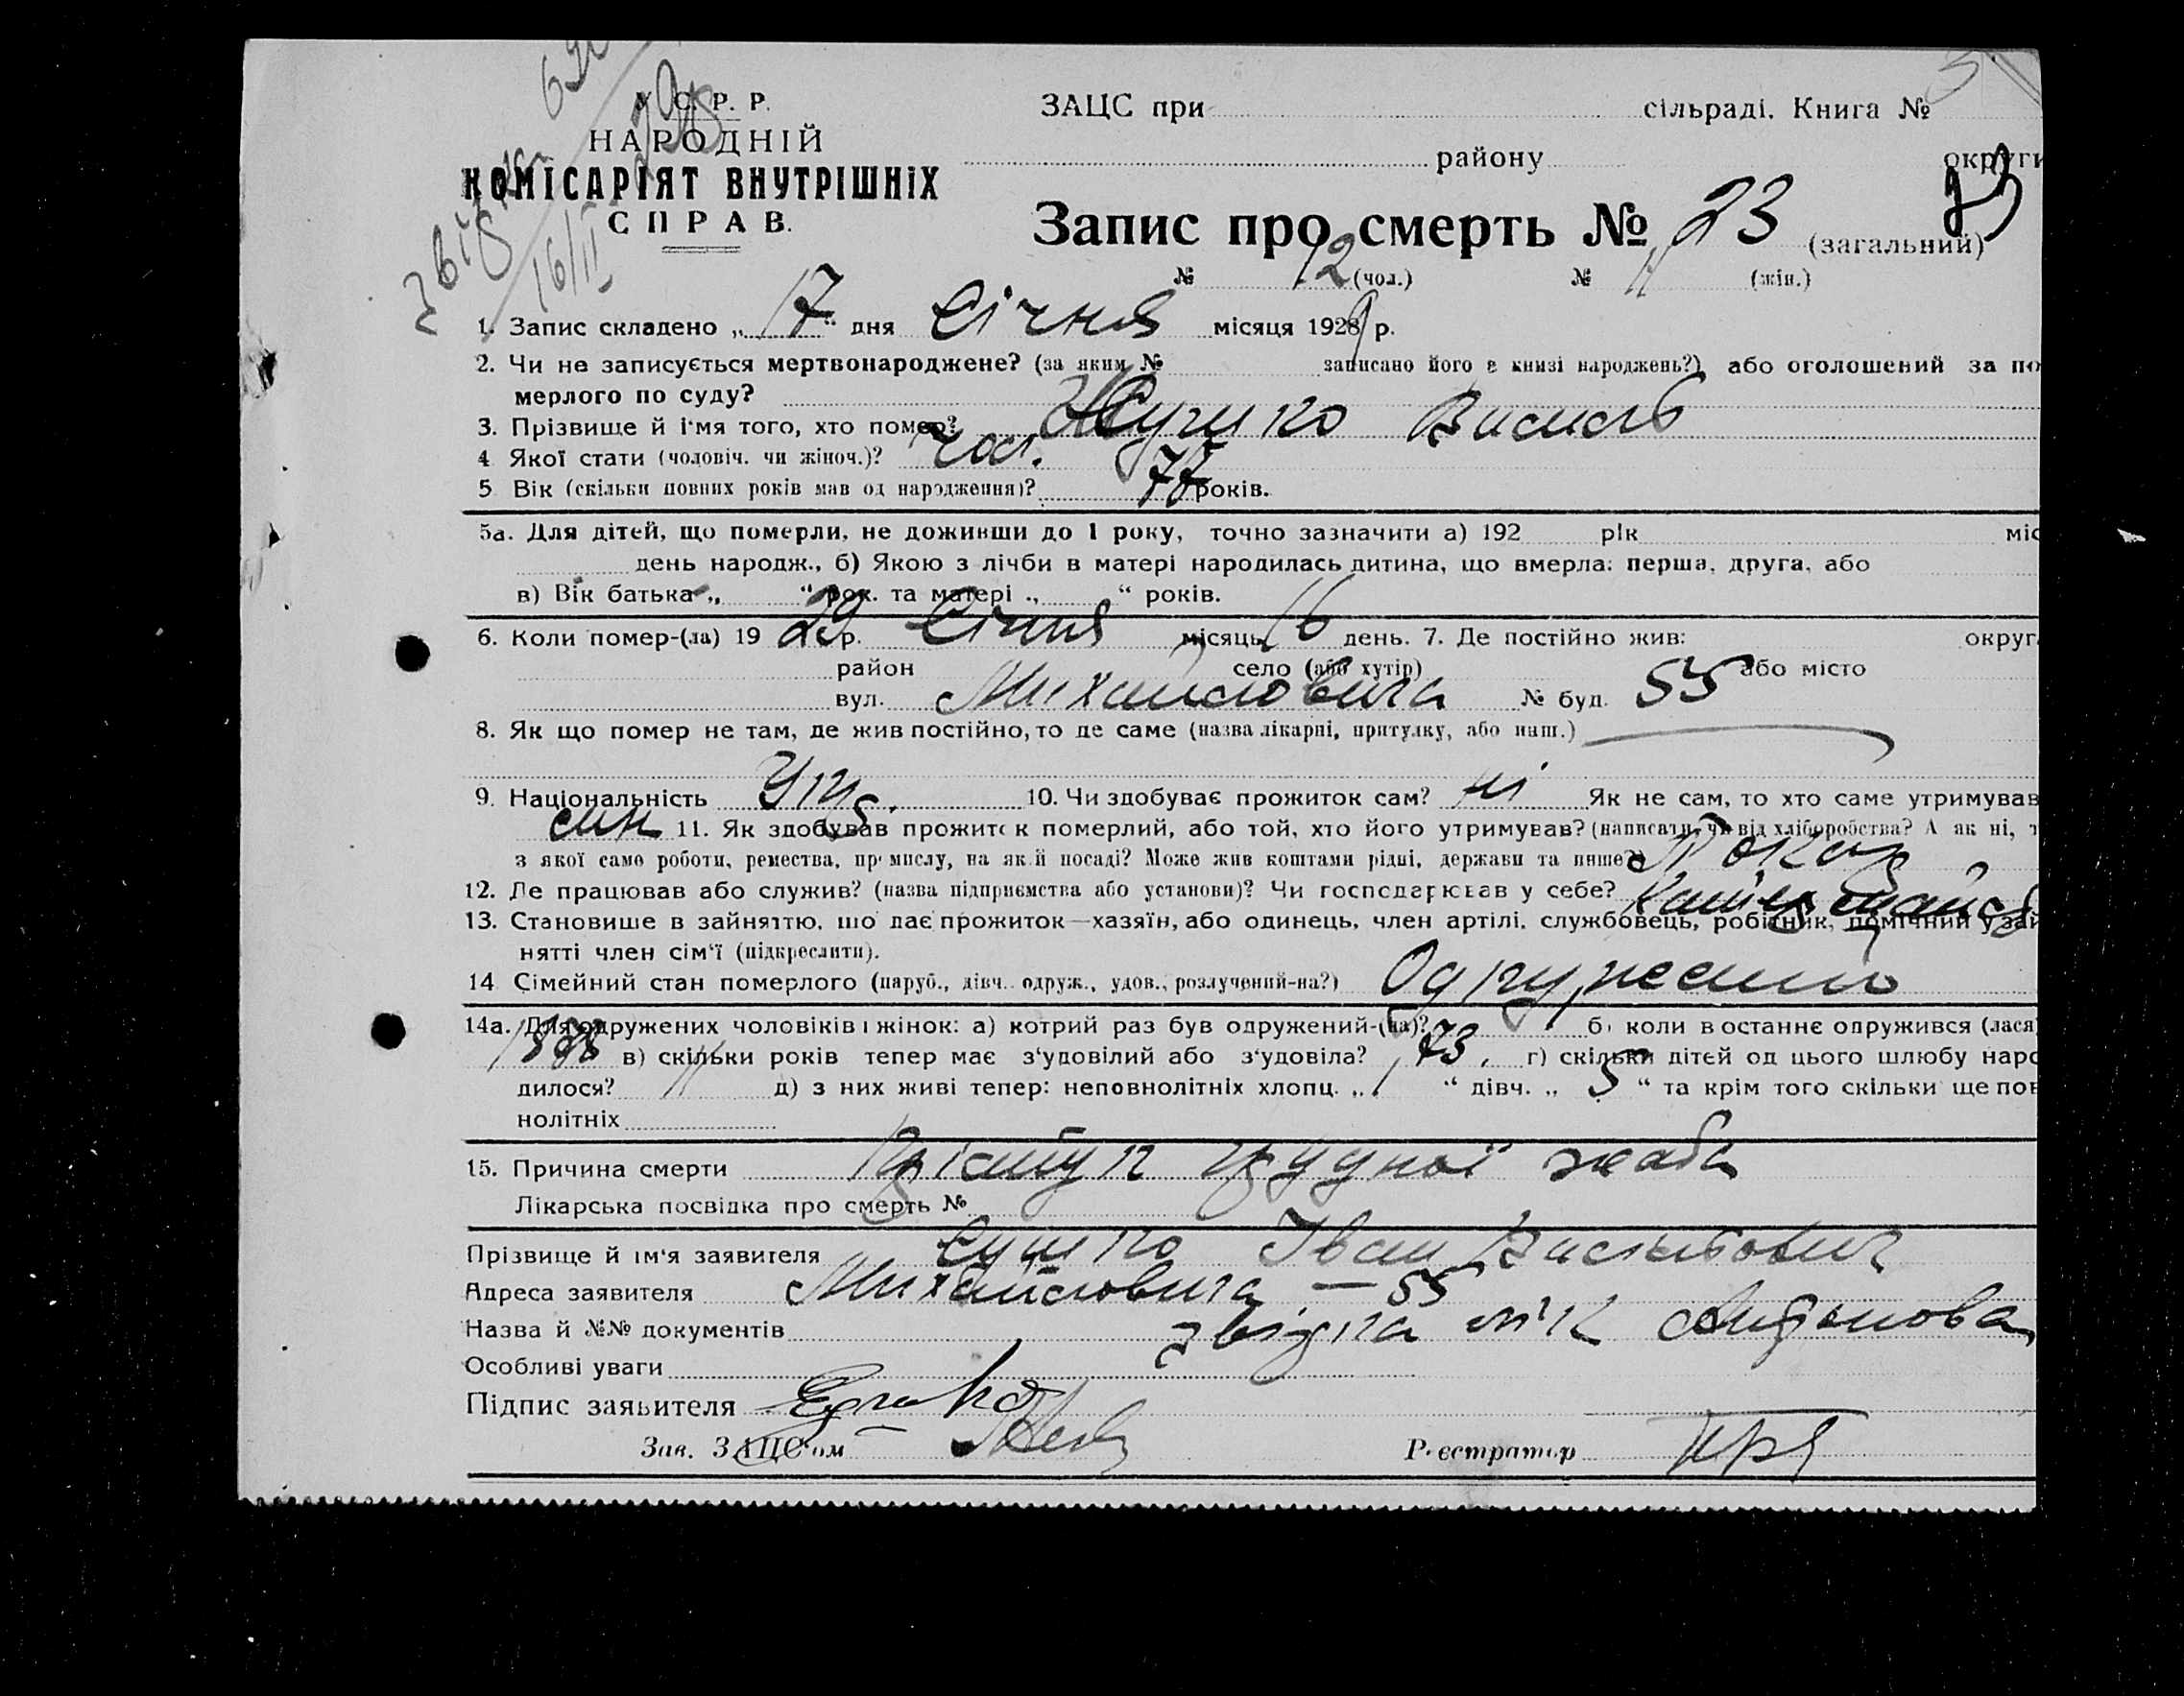 У. С. Р. Р.
НАРОДНІЙ
КОМІСАРІЯТ ВНУТРІШНІХ
СПРАВ.
16/II
ЗАЦС при сільраді. Книга №
району округи
Запис про смерть № 23 (загальний) 23
№ 12 (чол.) № 11 (жін.)
1. Запис складено „ 17 “ дня Січня місяця 1929 р.
2. Чи не записується мертвонароджене? (за яким № записано його в книзі народжень?) або оголошений за по
мерлого по суду?
3. Прізвище й ім'я того, хто помер? Василь
4 Якої стати (чоловіч. чи жіноч.)? чол.
5 Вік (скільки повних років мав од народження)? 77 років.
5а. Для дітей, що померли, не доживши до 1 року, точно зазначити а) 192 рік міс
день народж., б) Якою з лічби в матері народилась дитина, що вмерла: перша, друга, або
в) Вік батька „ “ рок. та матері „ “ років.
6. Коли помер-(ла) 19 29 р. Січня місяць 16 день. 7. Де постійно жив: округ
район село (або хутір) або місто
вул. Михайловича № буд. 55
8. Як що помер не там, де жив постійно, то де саме (назва лікарні, притулку, або инш.)
9. Національність Укр. 10. Чи здобуває прожиток сам? ні Як не сам, то хто саме утримував
син 11. Як здобував прожиток померлий, або той, хто його утримував? (написати, чи від хліборобства? А як ні, т
з якої само роботи, ремества, промислу, на якій посаді? Може жив коштами рідні, держави та инше?) Токар
12. Де працював або служив? (назва підприємства або установи)? Чи господарював у себе?
13. Становище в зайняттю, що дає прожиток—хазяїн, або одинець, член артілі, службовець, робітник, помічний у зай
нятті член сім'ї (підкреслити).
14 Сімейний стан померлого (паруб., дівч., одруж., удов., розлучений-на?) Одружений
14а. Для одружених чоловіків і жінок: а) котрий раз був одружений-(на)? 1 б) коли в останнє одружився (лася)
в) скільки років тепер має з'удовілий або з'удовіла? 73 г) скільки дітей од цього шлюбу наро
дилося? 11 д) з них живі тепер: неповнолітніх хлопц. „ 1 “ дівч. „ 5 “ та крім того скільки ще пов
нолітніх
15. Причина смерти Приступ грудної жаби
Лікарська посвідка про смерть №
Прізвище й ім'я заявителя Іван Васильович
Адреса заявителя Михайловича — 55
Назва й №№ документів звідка лік
Особливі уваги
Підпис заявителя
Зав. ЗАЦС'ом Реєстратор